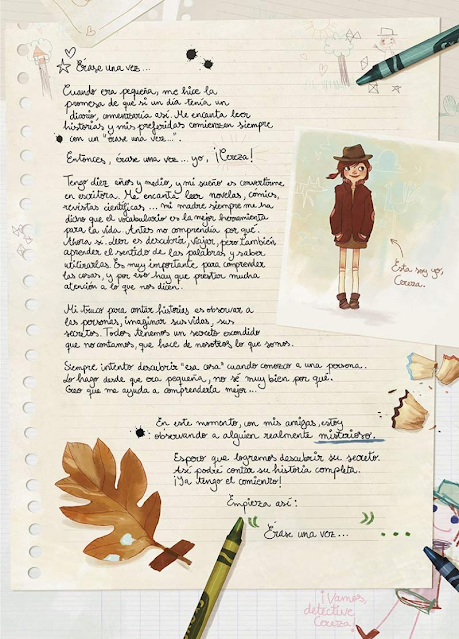 Érase una vez...
Cuando era pequeña, me hice la
promesa de que si un día tenía un
diario, comenzaría así. Me encanta leer
historias y mis preferidas comienzan siempre
con un "érase una vez...".
Entonces, érase una vez... yo, ¡Cereza!
Tengo diez años y medio, y mi sueño es convertirme
en escritora. Me encanta leer novelas, cómics,
revistas científicas... mi madre siempre me ha
dicho que el vocabulario es la mejor herramienta
para la vida. Antes no comprendía por qué.
Ahora sí. Leer es descubrir, viajar, pero también
aprender el sentido de las palabras y saber
utilizarlas. Es muy importante para comprender
las cosas, y por eso hay que prestar mucha
atención a lo que nos dicen.
Mi truco para contar historias es observar a
las personas, imaginar sus vidas, sus
secretos. Todos tenemos un secreto escondido
que no contamos, que hace de nosotros lo que somos.
Siempre intento descubrir "esa cosa" cuando conozco a una persona.
Lo hago desde que era pequeña, no sé muy bien por qué.
Creo que me ayuda a comprenderla mejor...
Esta soy yo,
Cereza.
En este momento, con mis amigas, estoy
observando a alguien realmente misterioso.
Espero que logremos descubrir su secreto.
Así podré contar su historia completa.
¡Ya tengo el comienzo!
Empieza así:
« Érase una vez... » ...
¡Vamos,
detective
Cereza!